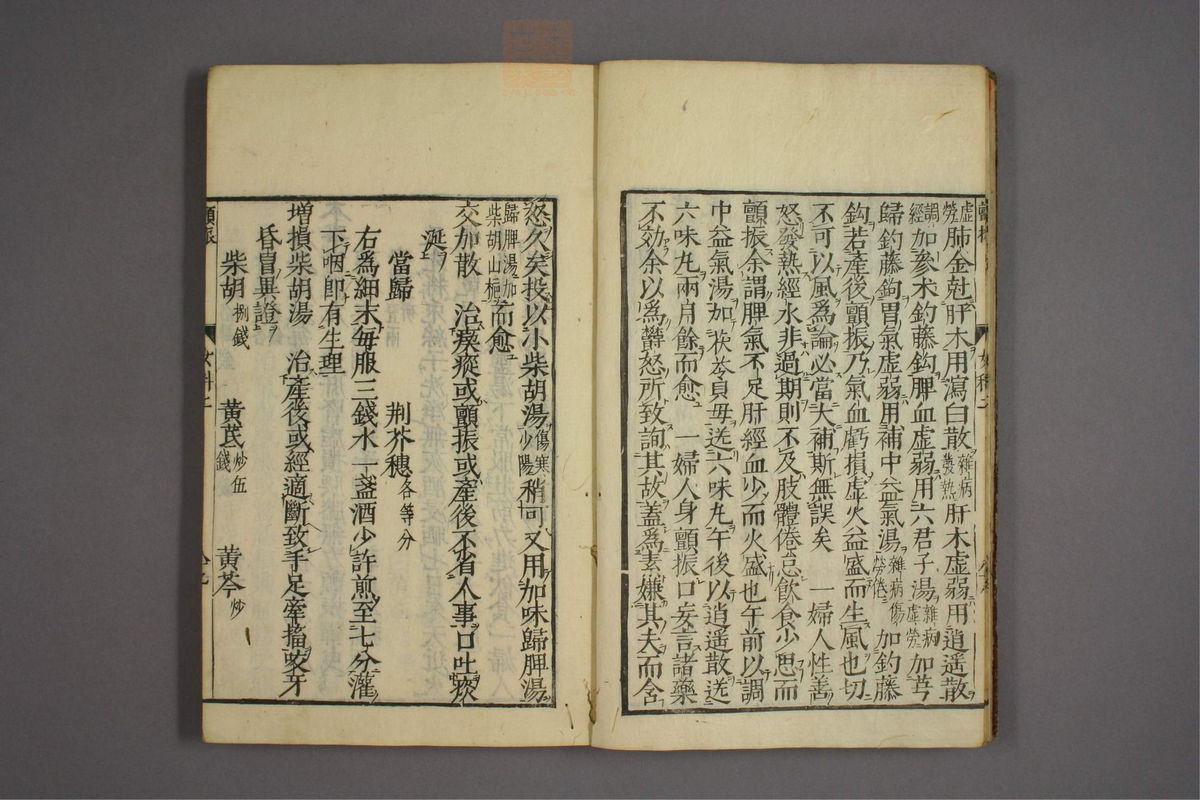 虛勞肺金尅肝木用瀉白散雜病發熱肝木虛弱用逍遙散
調經加參朮釣藤鈎脾血虛弱用六君子湯雜病虛勞加芎
歸釣藤鈎胃氣虛弱用補中益氣湯雜病傷勞倦加釣藤
鈎若產後顫振乃氣血虧損虛火益盛而生風也切
不可以風爲論必當大補斯無誤矣　一婦人性善
怒發熱經水非過期則不及肢體倦怠飲食少思而
顫振余謂脾氣不足肝經血少而火盛也午前以調
中益氣湯加茯苓貝母送六味丸午後以逍遙散送
六味丸兩月餘而愈　一婦人身顫振口妄言諸藥
不効余以爲欝怒所致詢其故蓋爲素嫌其夫而含
怒久矣投以小柴胡湯傷寒少陽稍可又用加味歸脾湯
歸脾湯加柴胡山梔而愈
交加散　治瘈瘲或顫振或產後不省人事口吐痰
涎
當歸　荆芥穗各等分
右爲細末每服三錢水一盞酒少許煎至七分灌
下咽卽有生理
增損柴胡湯　治產後或經適斷致手足牽搐咬牙
昏冒異證
柴胡捌錢　黃芪炒伍錢　黃芩炒
顫振
女科二